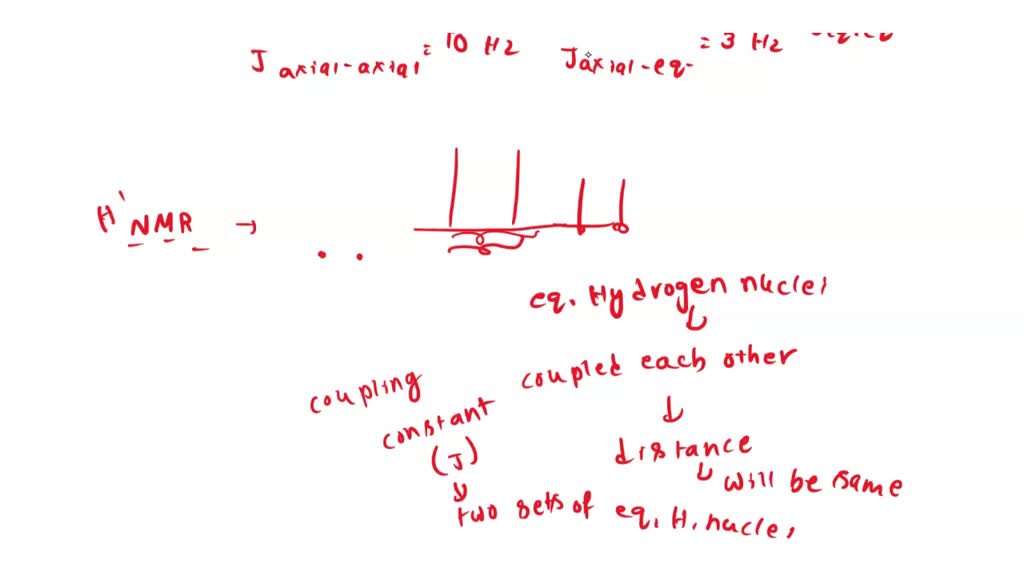 J axial-axial = 10 Hz J axial-eq. = 3 Hz
H' NMR →
eq. Hydrogen nuclei
coupled each other
coupling
constant
(J)
distance
will be same
two sets of eq. H. nuclei